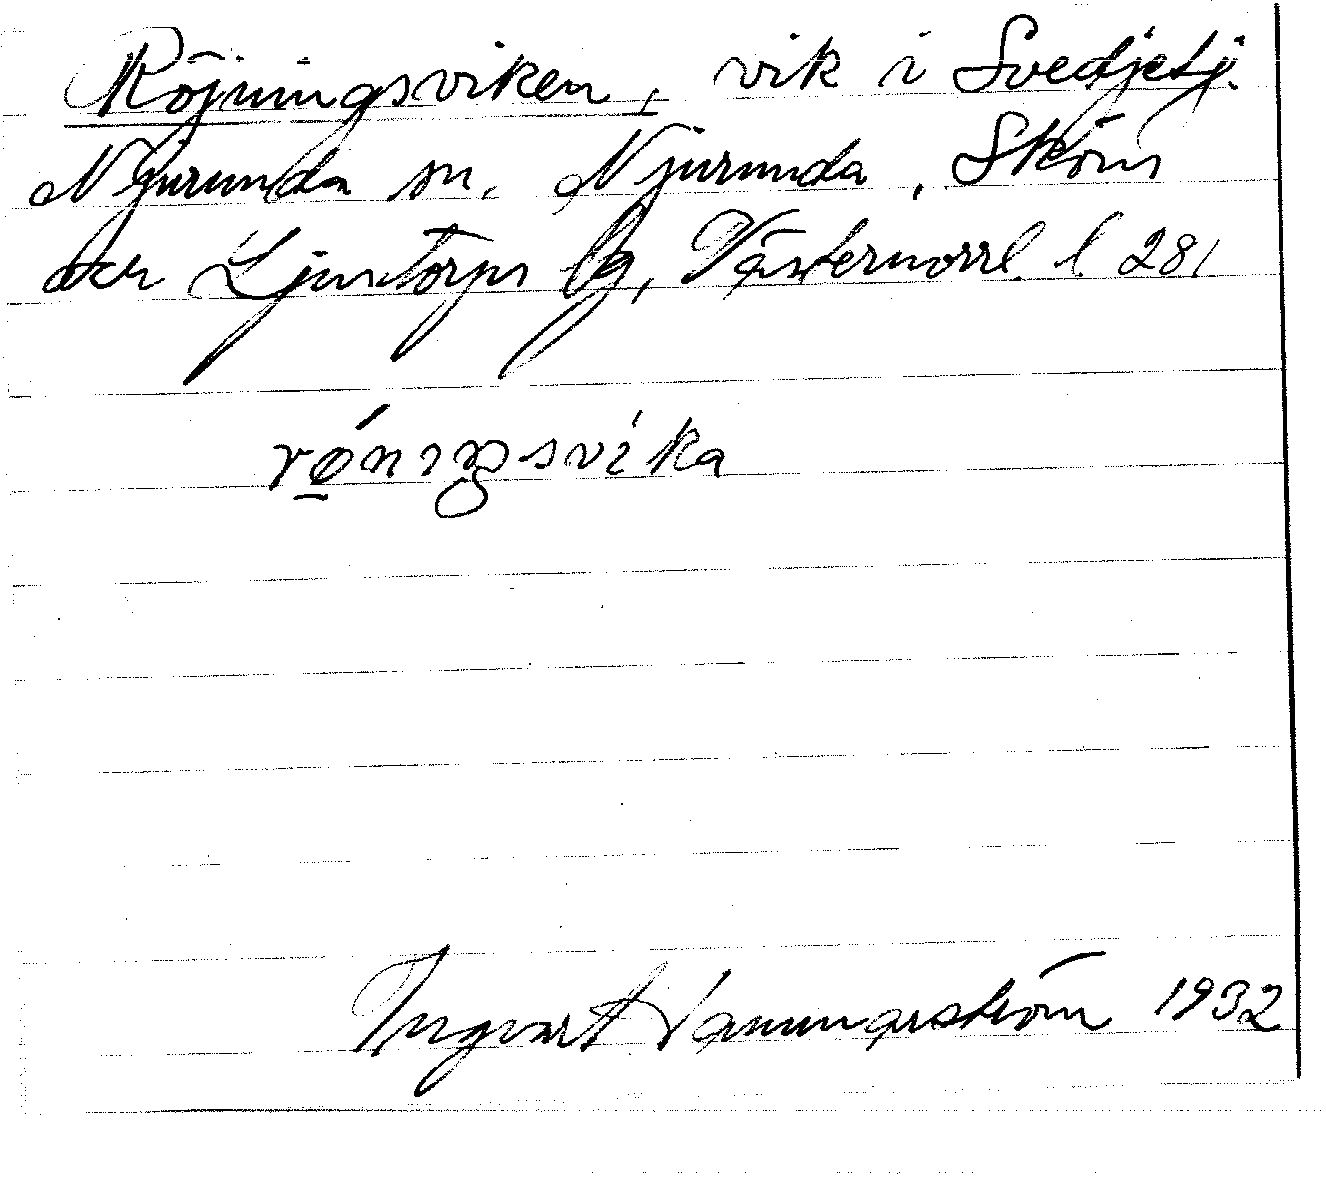 Röjningsviken, vik i Svedjetj.
Njurunda sn. Njurunda, Sköns
och Ljustorps tg, Västernorrl. l. 281
rǿ̱nɪŋsvìka
Ingvart 1932